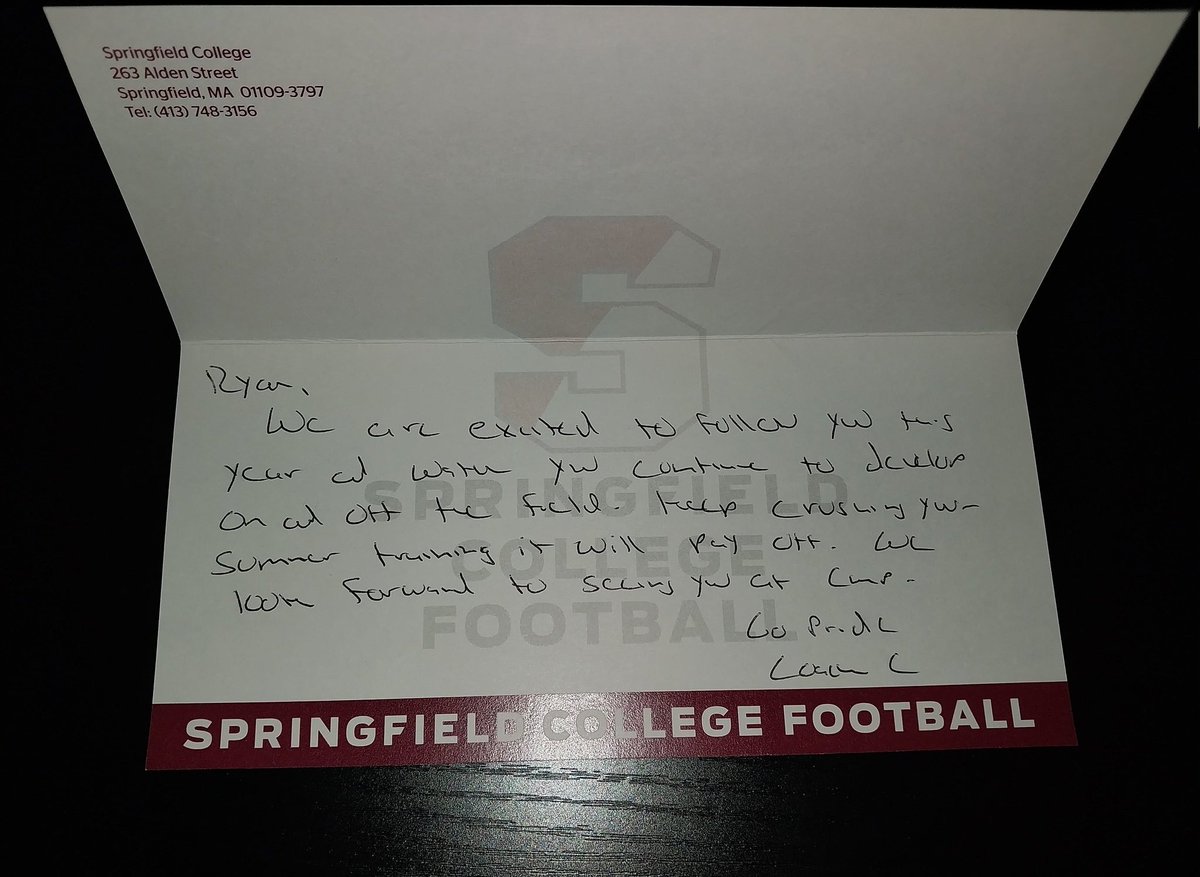 Springfield College
263 Alden Street
Springfield, MA 01109-3797
Tel: (413) 748-3156
S
Ryan,
We are excited to follow you this
year and watch you continue to develop
on and off the field. Keep crushing your
summer training it will pay off. We
look forward to seeing you at camp.
Go Pride
Coach C
SPRINGFIELD
COLLEGE
FOOTBALL
SPRINGFIELD COLLEGE FOOTBALL